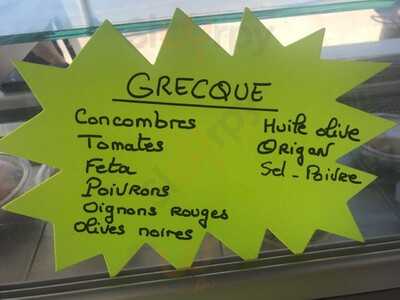 GRECQUE
Concombres
Tomates
Feta
Poivrons
Oignons rouges
Olives noires
Huile olive
Origan
Sel - Poivre